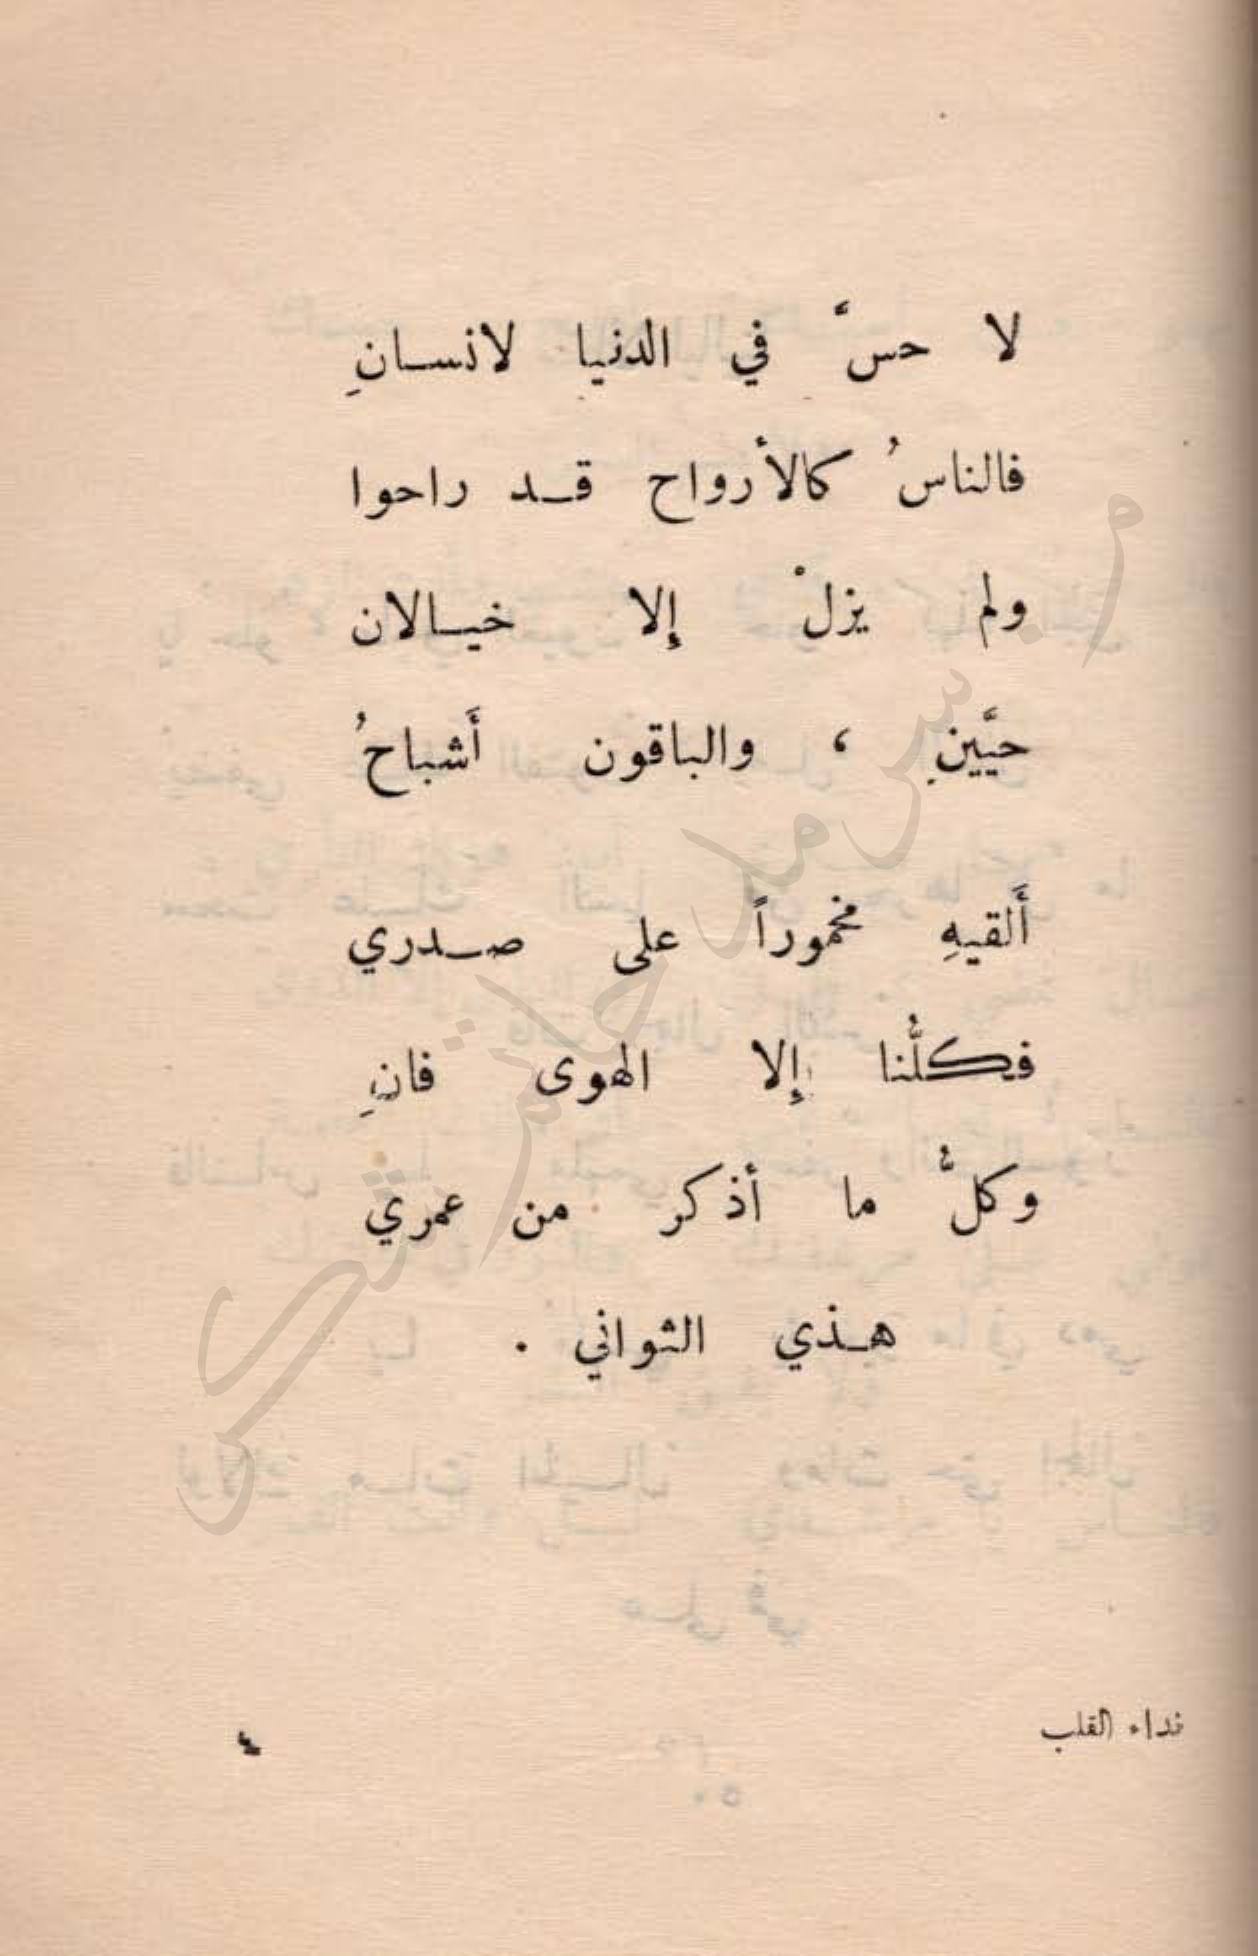 لا حسَّ في الدنيا لانسـانِ
فالناسُ كالأرواح قـد راحوا
ولم يزلْ إلا خيـالان
حيَّينِ ، والباقون أَشباحُ
أَلقيهِ مخموراً على صـدري
فكلُّنا إلا الهوى فانِ
وكلُّ ما أذكر من عمري
هـذي الثواني .
نداء القلب